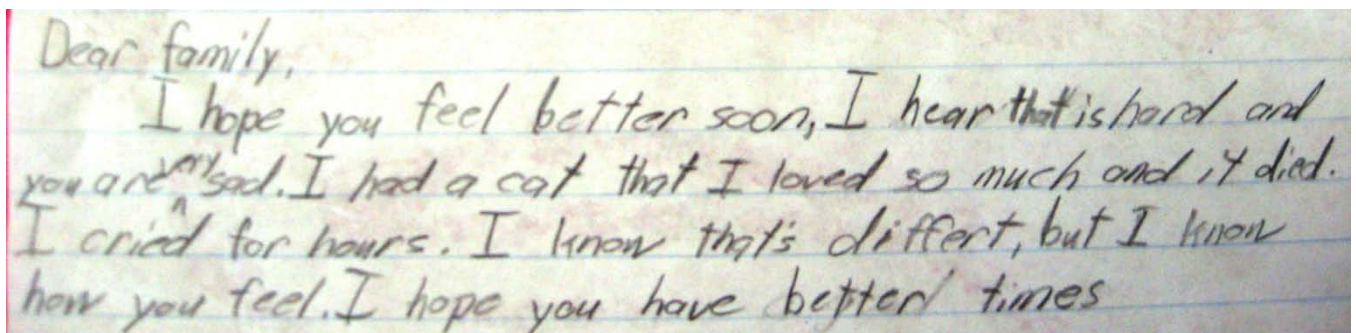 Dear family,
I hope you feel better soon, I hear that is hard and
you are very sad. I had a cat that I loved so much and it died.
I cried for hours. I know that's differt, but I know
how you feel. I hope you have better times